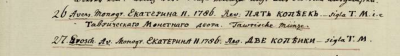 26. Avers Monogr. ЕКАТЕРИНА II. 1786. Rev. ПЯТЬ КОПѢЕКЪ — sigla Т.М. i.e.
Таврическаго Монетнаго двора.
27. Grosch Av. Monogr. ЕКАТЕРИНА II 1796. Rev. ДВЕ КОПѢИКИ —